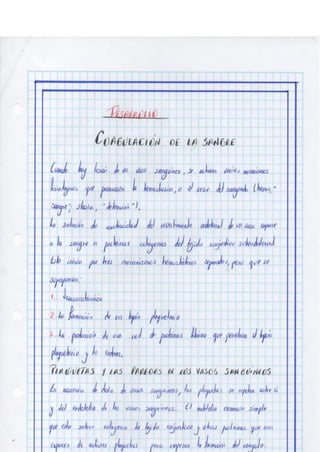 DESARROLLO
COAGULACIÓN DE LA SANGRE
Cuando hay lesión de un vaso sanguíneo, se activan varios mecanismos
fisiológicos que promueven la hemostasia, o el cese del sangrado (hemo, "
sangre"; stasis, "detención").
La solución de continuidad del revestimiento endotelial de un vaso expone
a la sangre a proteínas colágenas del tejido conjuntivo subendotelial.
Esto inicia por tres mecanismos hemostáticos separados, pero que se
superponen:
1. Vasoconstricción
2. La formación de un tapón plaquetario
3. La producción de una red de proteínas fibrina que penetra el tapón
plaquetario y lo rodea.
PLAQUETAS Y LAS PAREDES DE LOS VASOS SANGUÍNEOS
En ausencia de daño de vasos sanguíneos, las plaquetas se repelen entre sí
y del endotelio de los vasos sanguíneos. El endotelio escamoso simple
que está sobre colágeno de tejido conjuntivo y otras proteínas que son
capaces de activar plaquetas para empezar la formación del coágulo.